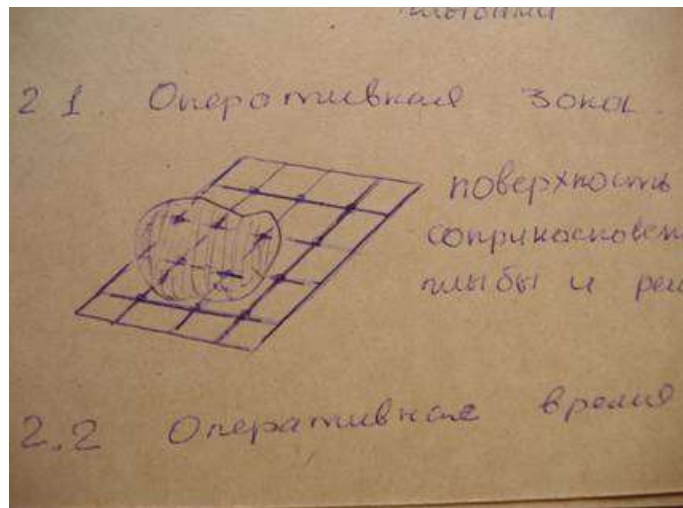 2 1. Оперативная зона.
поверхность
соприкосновен
глыбы и реш
2.2 Оперативное время